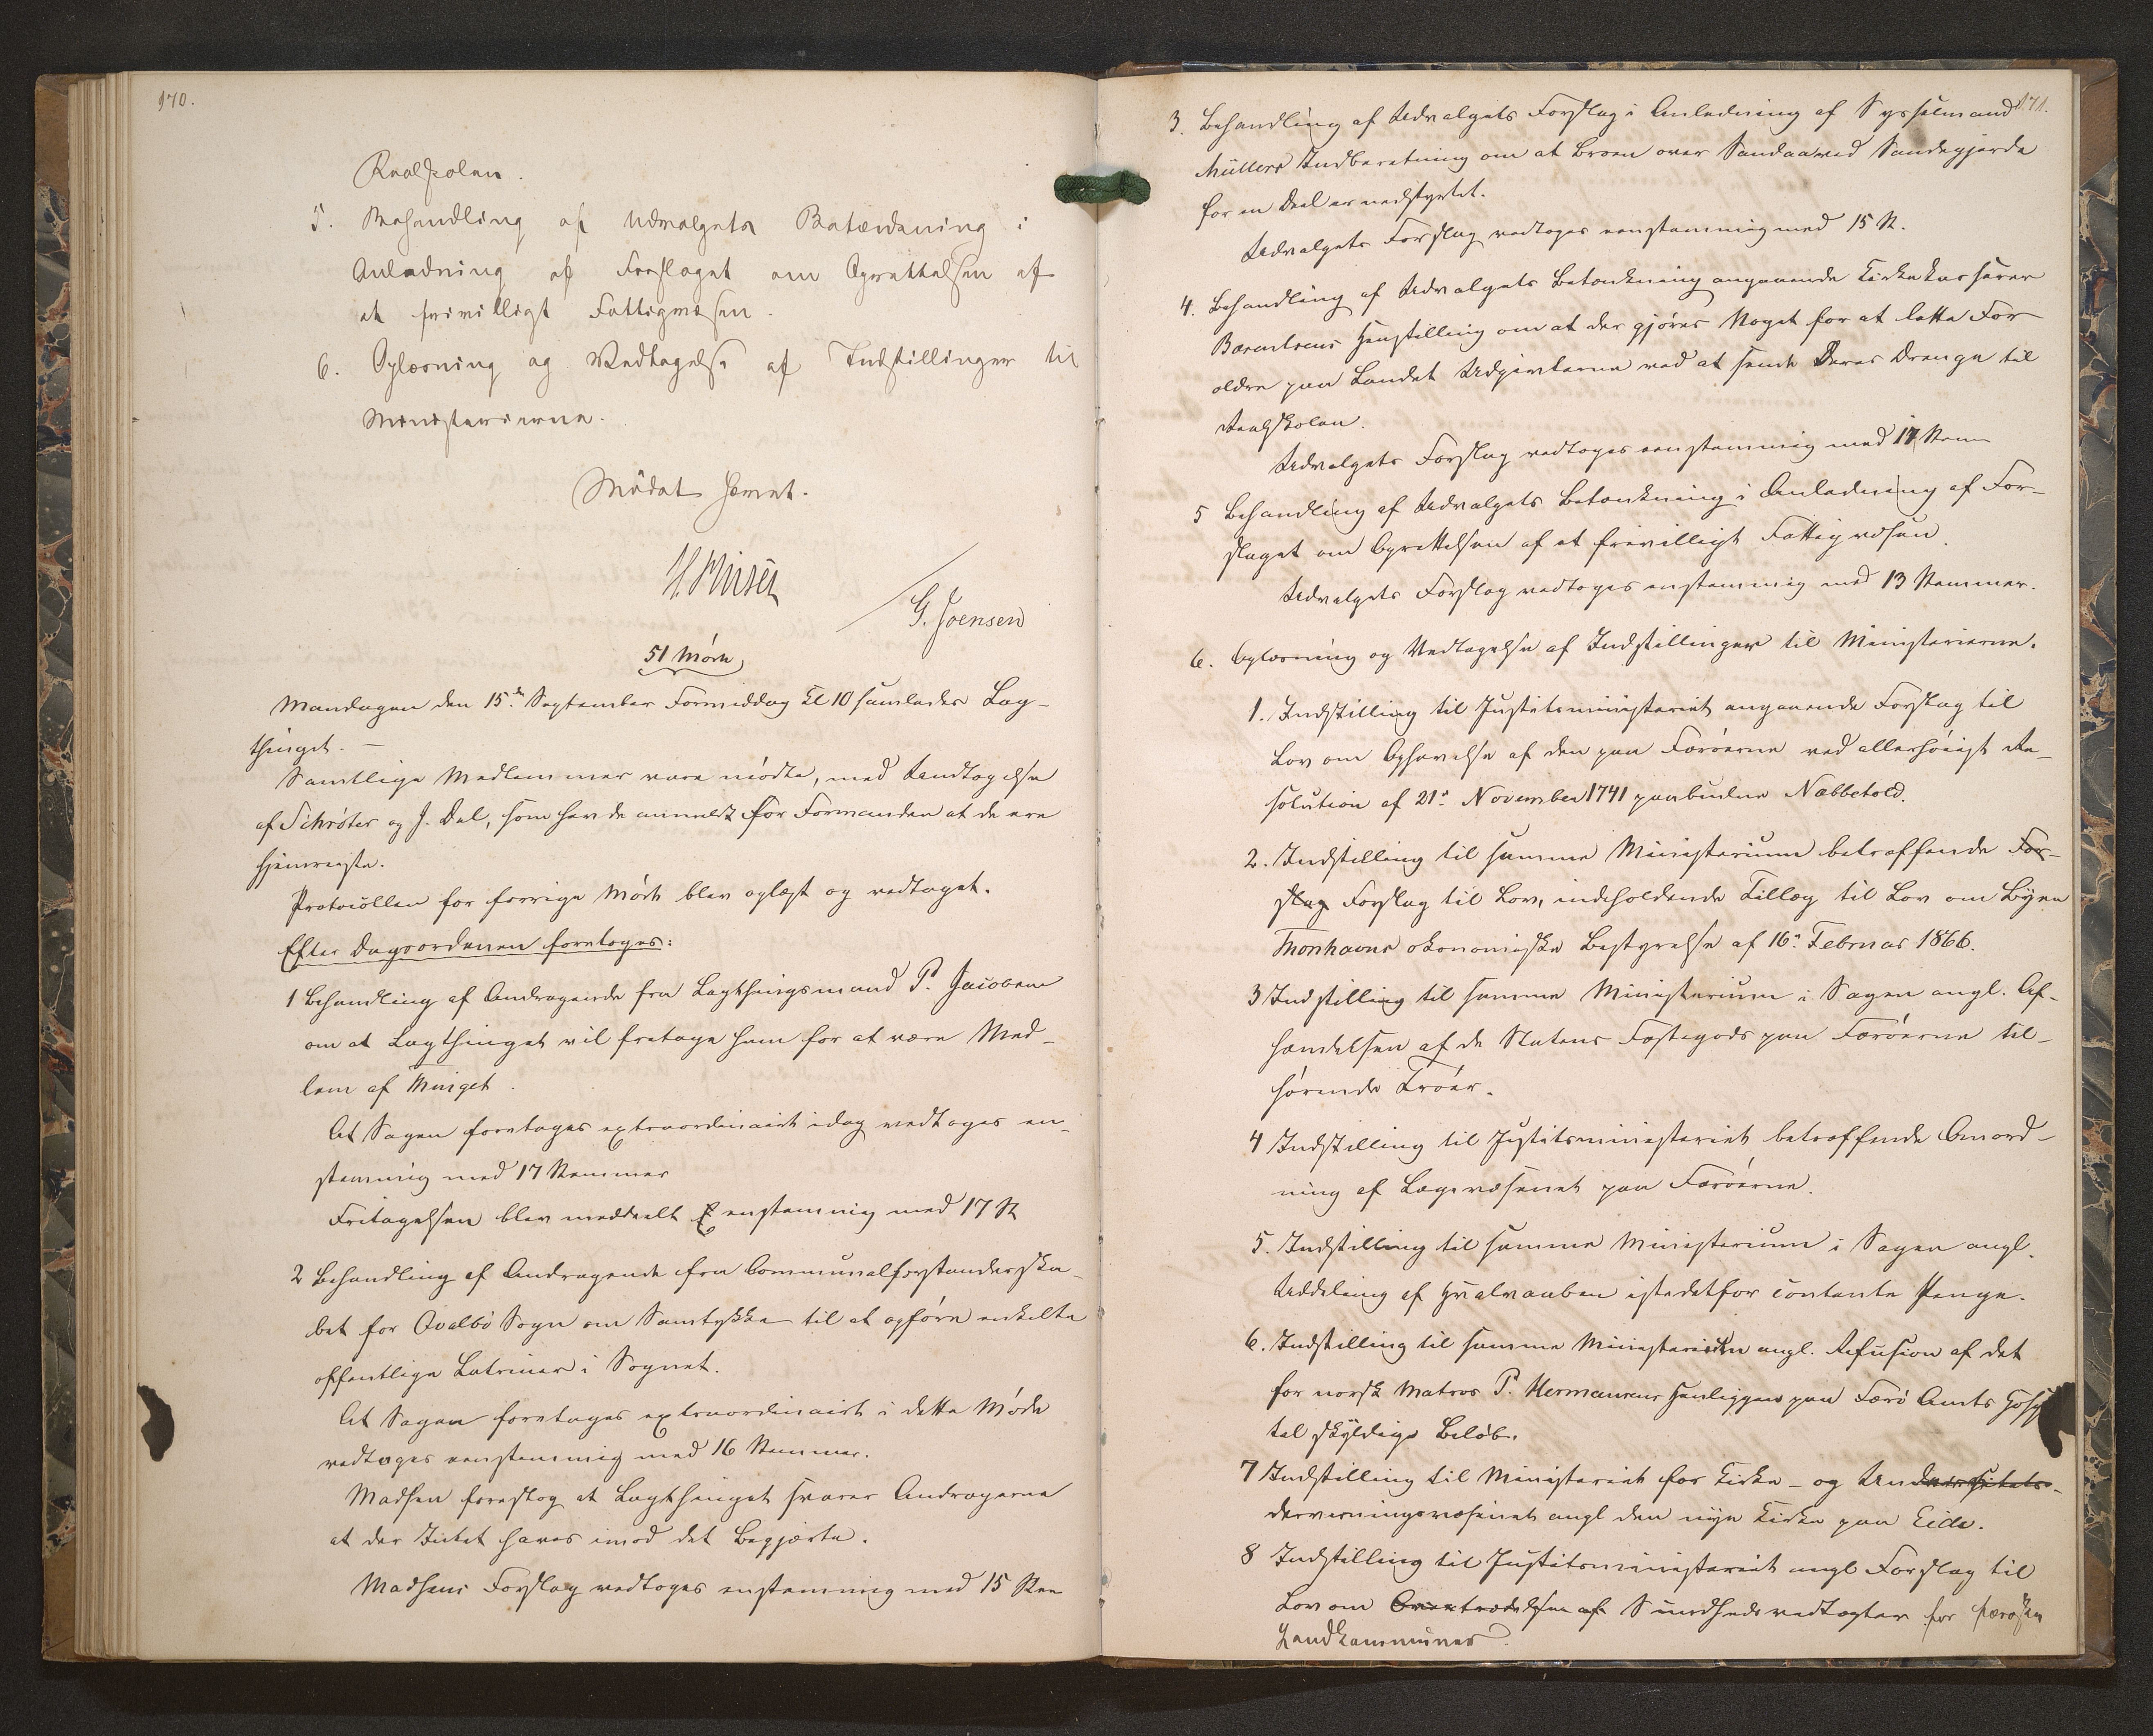 170.
Realskolen.
5. Behandling af Udvalgets Betænkning i
Anledning af Forslaget om Oprettelsen af
et frivilligt Fattigvæsen.
6. Oplæsning og Vedtagelse af Indstillinger til
Ministerierne.
Mödet hævet.
G. Joensen
51 Möde
Mandagen den 15de September Formiddag Kl 10 samledes Lag-
thinget. —
Samtlige Medlemmer vare mödte, med Undtagelse
af Schröter og J. Dal, som havde anmeldt for Formanden at de ere
hjemreiste.
Protocollen for forrige Möde blev oplæst og vedtaget.
Efter Dagsordenen foretoges:
1 Behandling af Andragende fra Lagthingsmand P. Jacobsen
om at Lagthinget vil fritage ham for at være Med-
lem af Thinget.
At Sagen foretages extraordinairt idag vedtoges en-
stemmig med 17 Stemmer
Fritagelsen blev meddeelt Eenstemmig med 17 St
2 Behandling af Andragende fra Communalforstanderska-
bet for Qvalbö Sogn om Samtykke til at opföre enkelte
offentlige Latriner i Sognet.
At Sagen foretages extraordinairt i dette Möde
vedtoges eenstemmig med 16 Stemmer.
Madsen foreslog at Lagthinget svarer Andragerne
at der Intet haves imod det Begjærte.
Madsens Forslag vedtoges enstemmig med 15 Stem
171.
3. Behandling af Udvalgets Forslag i Anledning af Sysselmand
Müllers Indberetning om at Broen over Sandaa ved Sandegjerde
for en Deel er nedstyrtet.
Udvalgets Forslag vedtoges eenstemmig med 15 St.
4. Behandling af Udvalgets Betænkning angaaende Kirkekasserer
Bærentsens Henstilling om at der gjöres Noget for at lette For-
ældre paa Landet Udgivterne ved at sende Deres Drenge til
Realskolen.
Udvalgets Forslag vedtoges eenstemmig med 17 Stem
5 Behandling af Udvalgets Betænkning i Anledning af For-
slaget om Oprettelsen af et frivilligt Fattigvæsen.
Udvalgets Forslag vedtoges enstemmig med 13 Stemmer.
6. Oplæsning og Vedtagelse af Indstillinger til Ministerierne.
1. Indstilling til Justitsministeriet angaaende Forslag til
Lov om Ophævelse af den paa Færöerne ved allerhöiest Re-
solution af 21de November 1741 paabudne Næbbetold.
2. Indstilling til samme Ministerium betræffende For-
slag Forslag til Lov, indeholdende Tillæg til Lov om Byen
Thorshavns økonomiske Bestyrelse af 16de Februar 1866.
3 Indstilling til samme Ministerium i Sagen angl. Af-
hændelsen af de Statens Fæstegods paa Færöerne til-
hörende Tröer.
4 Indstilling til Justitsministeriet betræffende Omord-
ning af Lægevæsenet paa Færöerne.
5. Indstilling til samme Ministerium i Sagen angl.
Uddeling af Hvalvaaben istedetfor contante Penge.
6. Indstilling til samme Ministerium angl. Refusion af det
for norsk Matros P. Hermansens Henliggen paa Færö Amts Hosp
tal skyldige Belöb.
7 Indstilling til Ministeriet for Kirke- og Un
dervisningsvæsenet angl den nye Kirke paa Eide.
8 Indstilling til Justitsministeriet angl Forslag til
Lov om Overtrædelsen af Sundhedsvedtægter for færøske
Landkommuner